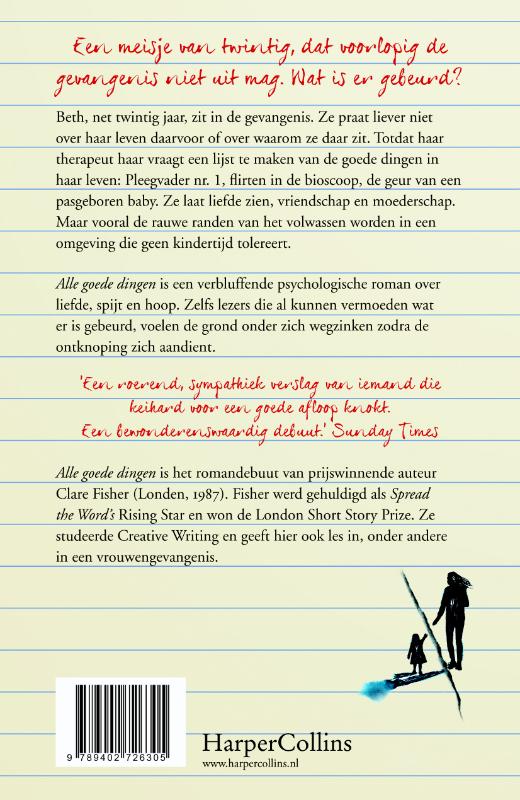 Een meisje van twintig, dat voorlopig de
gevangenis niet uit mag. Wat is er gebeurd?
Beth, net twintig jaar, zit in de gevangenis. Ze praat liever niet
over haar leven daarvoor of over waarom ze daar zit. Totdat haar
therapeut haar vraagt een lijst te maken van de goede dingen in
haar leven: Pleegvader nr. 1, flirten in de bioscoop, de geur van een
pasgeboren baby. Ze laat liefde zien, vriendschap en moederschap.
Maar vooral de rauwe randen van het volwassen worden in een
omgeving die geen kindertijd tolereert.
Alle goede dingen is een verbluffende psychologische roman over
liefde, spijt en hoop. Zelfs lezers die al kunnen vermoeden wat
er is gebeurd, voelen de grond onder zich wegzinken zodra de
ontknoping zich aandient.
'Een roerend, sympathiek verslag van iemand die
keihard voor een goede afloop knokt.
Een bewonderenswaardig debuut.' Sunday Times
Alle goede dingen is het romandebuut van prijswinnende auteur
Clare Fisher (Londen, 1987). Fisher werd gehuldigd als Spread
the Word's Rising Star en won de London Short Story Prize. Ze
studeerde Creative Writing en geeft hier ook les in, onder andere
in een vrouwengevangenis.
9 789402 726305
HarperCollins
www.harpercollins.nl